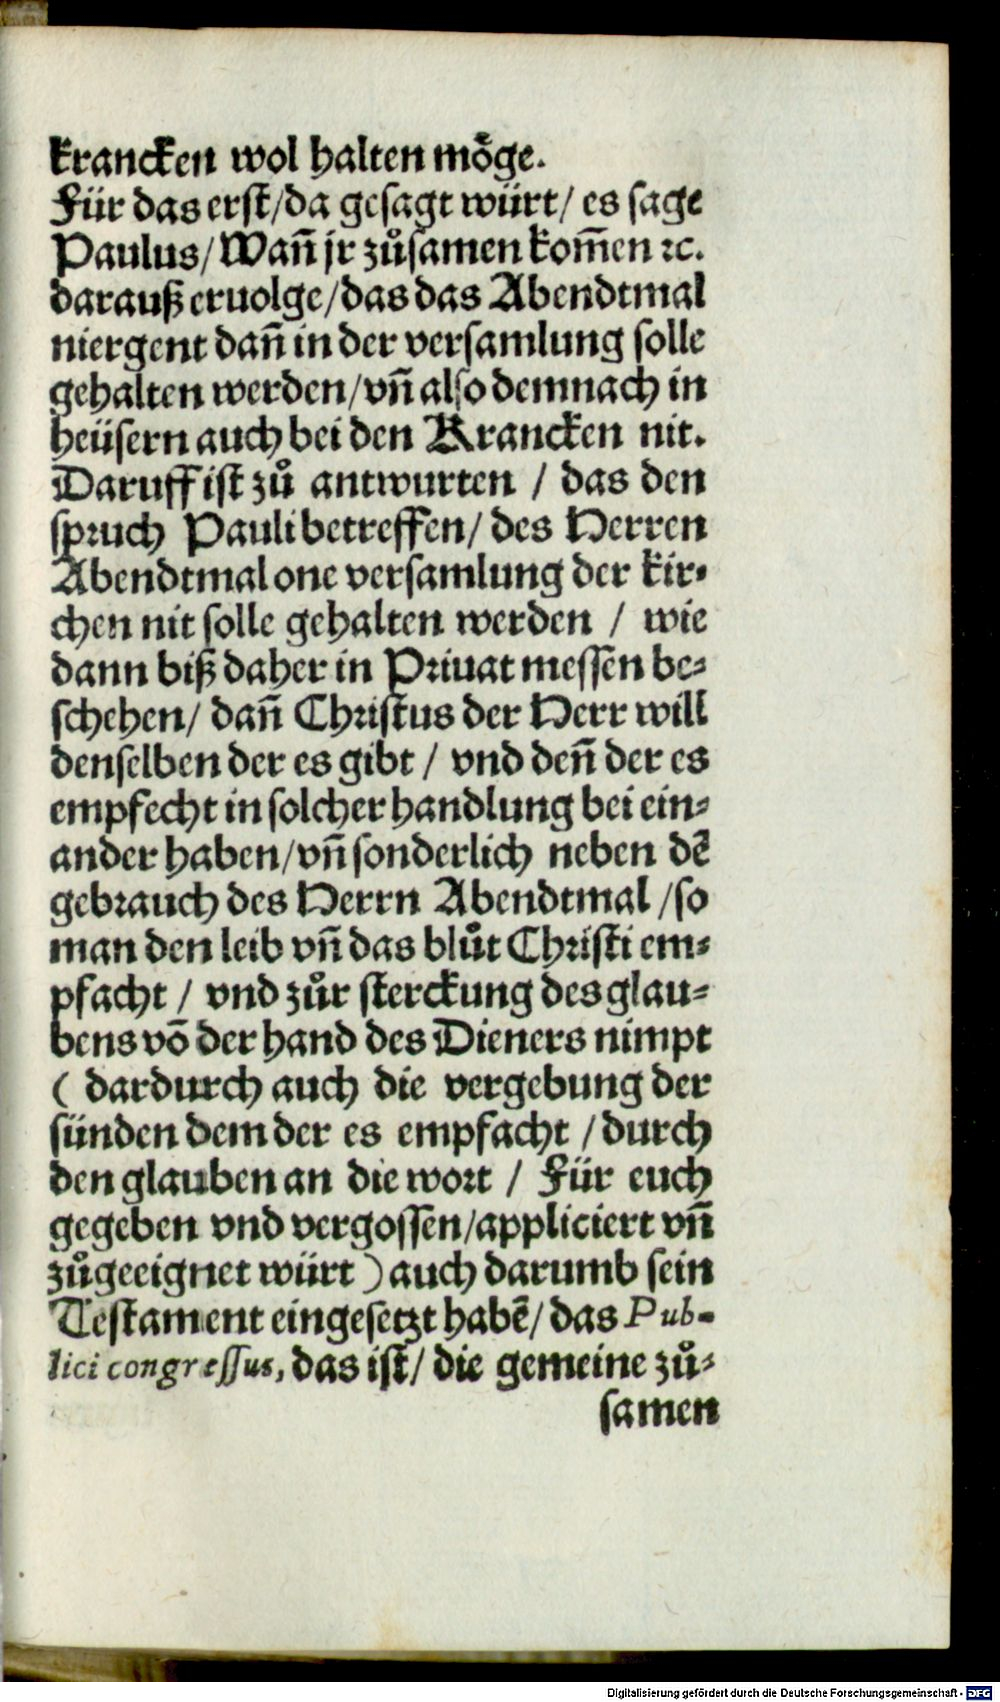 krancken wol halten mo̊ge.
Für das erst/da gesagt würt/ es sage
Paulus/Wañ jr zůsamen kom̃en ꝛc.
darauß eruolge/das das Abendtmal
niergent dañ in der versamlung solle
gehalten werden/vñ also demnach in
heüsern auch bei den Krancken nit.
Daruff ist zů antwurten / das den
spruch Pauli betreffen/ des Herren
Abendtmal one versamlung der kir-
chen nit solle gehalten werden / wie
dann biß daher in Priuat messen be-
schehen/ dañ Christus der Herr will
denselben der es gibt / vnd deñ der es
empfecht in solcher handlung bei ein-
ander haben/vñ sonderlich neben dẽ
gebrauch des Herrn Abendtmal /so
man den leib vñ das blůt Christi em-
pfacht / vnd zůr sterckung des glau-
bens võ der hand des Dieners nimpt
( dardurch auch die vergebung der
sünden dem der es empfacht /durch
den glauben an die wort / Für euch
gegeben vnd vergossen/appliciert vñ
zůgeeignet würt ) auch darumb sein
Testament eingesetzt habẽ/ das Pub-
lici congressus, das ist/ die gemeine zů-
samen
Digitalisierung gefördert durch die Deutsche Forschungsgemeinschaft - DFG